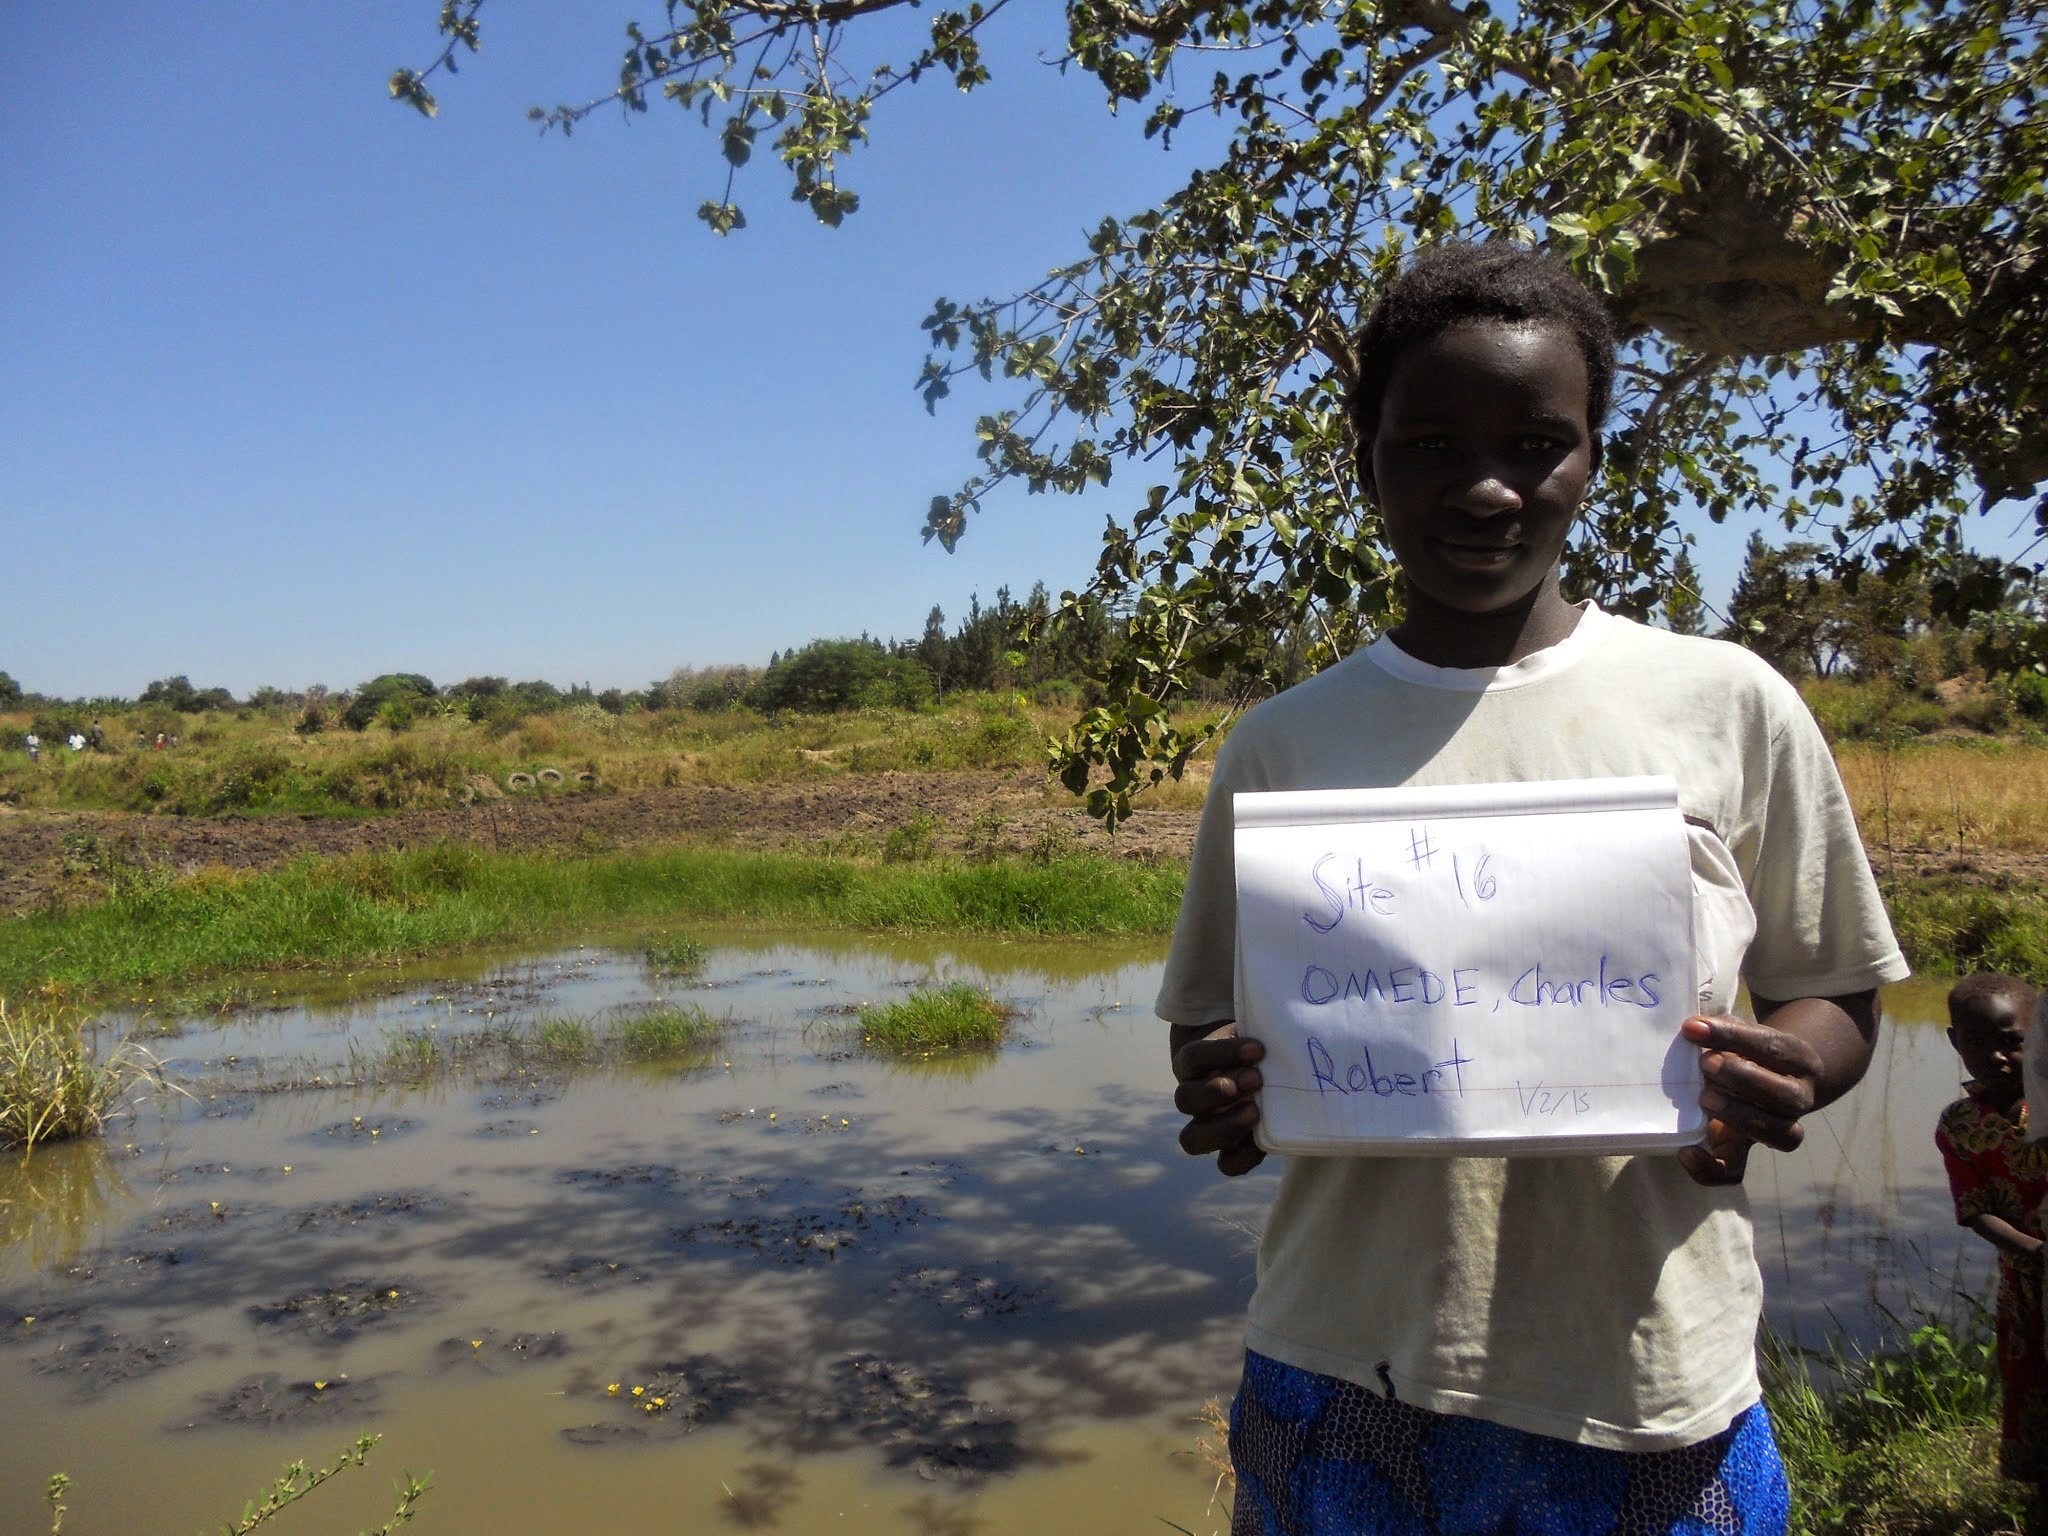 Site #16
OMEDE, Charles
Robert
1/2/15